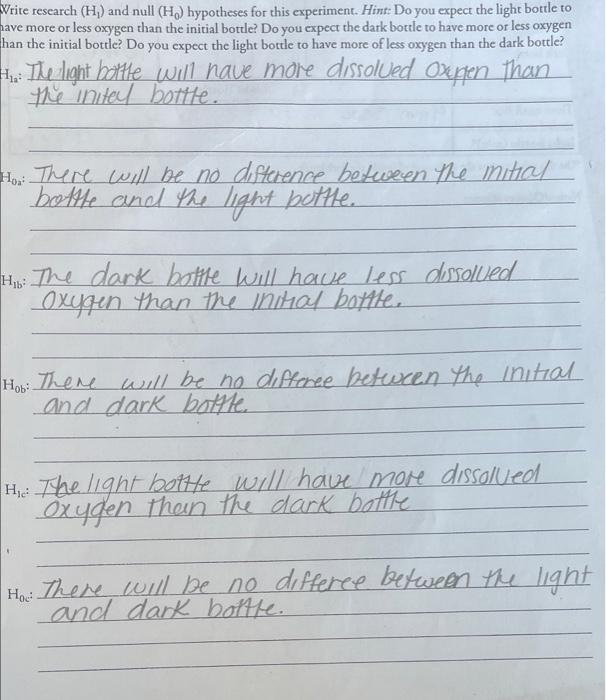 Write research (H₁) and null (H₀) hypotheses for this experiment. Hint: Do you expect the light bottle to
have more or less oxygen than the initial bottle? Do you expect the dark bottle to have more or less oxygen
than the initial bottle? Do you expect the light bottle to have more of less oxygen than the dark bottle?
H₁ₐ: The light bottle will have more dissolved Oxygen than
the inital bottle.
H₀ₐ: There will be no difference between the initial
bottle and the light bottle.
H₁b: The dark bottle will have less dissolved
Oxygen than the initial bottle.
H₀b: There will be no differee between the initial
and dark bottle.
H₁c: The light bottle will have more dissolved
Oxygen than the dark bottle
H₀c: There will be no differee between the light
and dark bottle.